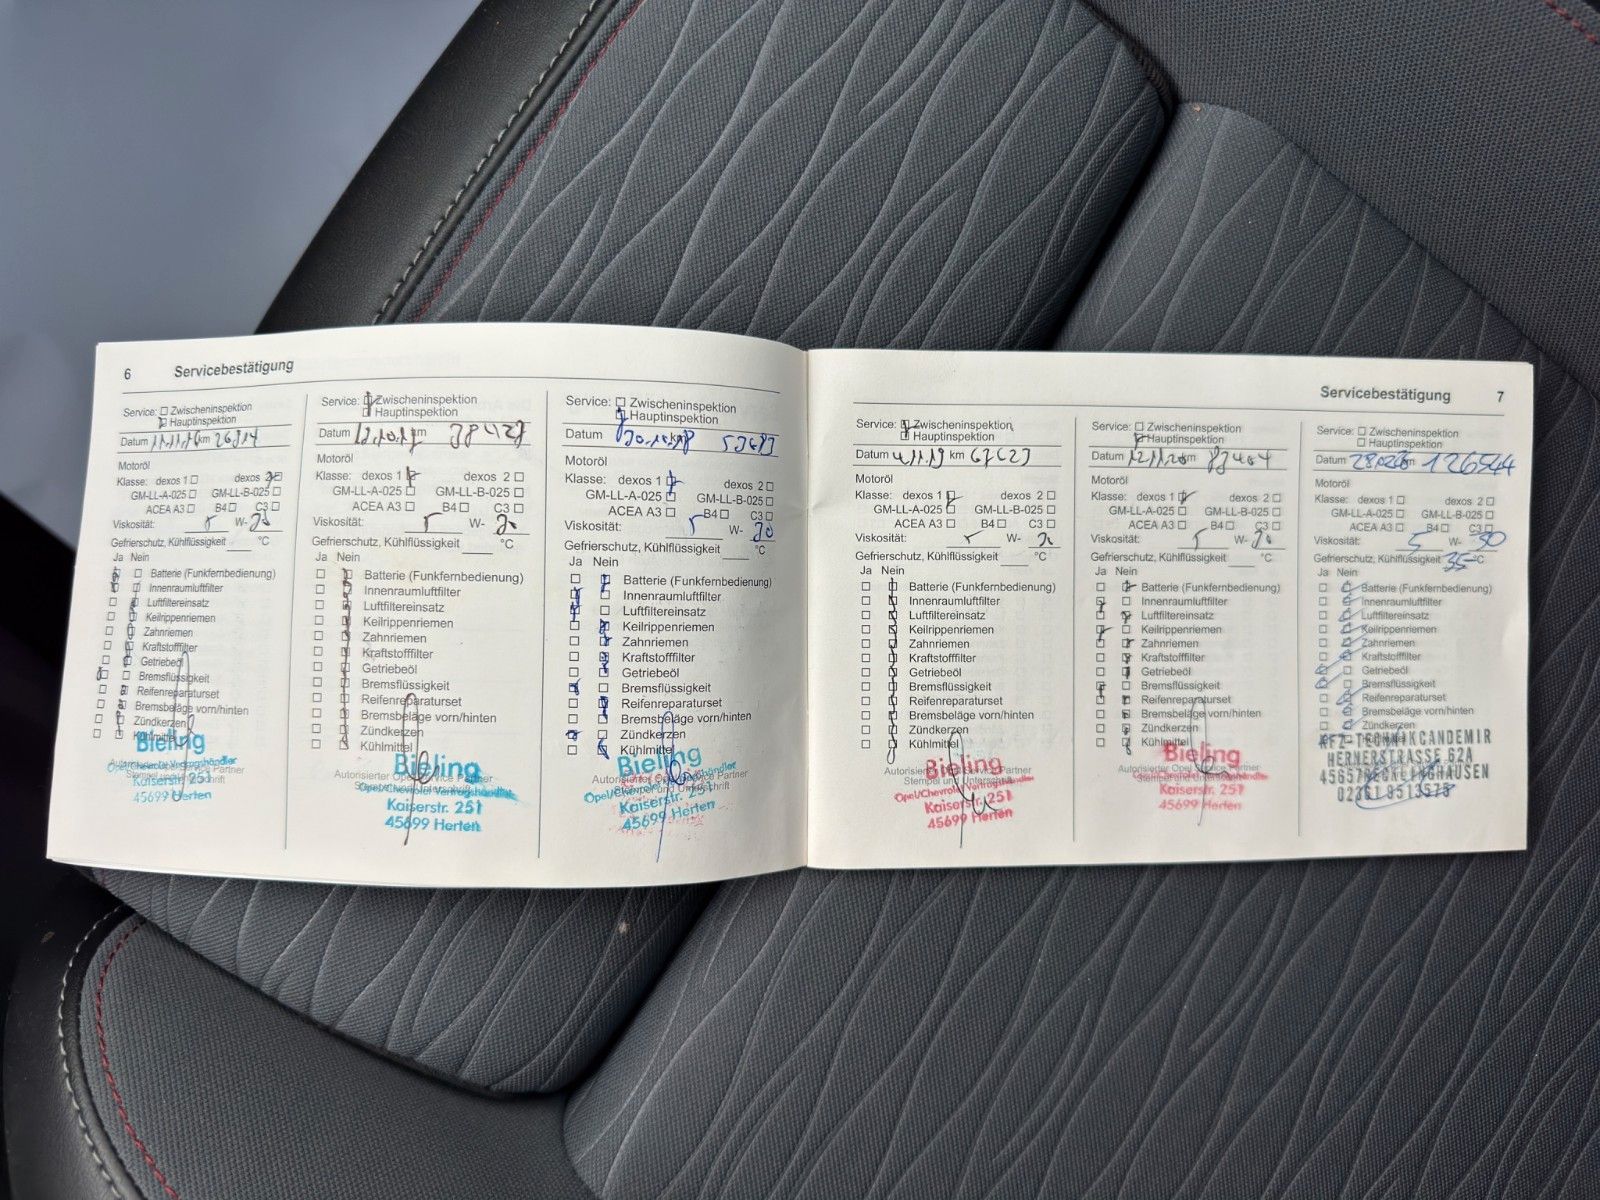 6 Servicebestätigung
Service: Zwischeninspektion
Hauptinspektion
Datum 11.11.16 km 26914
Motoröl
Klasse: dexos 1 dexos 2
GM-LL-A-025 GM-LL-B-025
ACEA A3 B4 C3
Viskosität: 5 W- 30
Gefrierschutz, Kühlflüssigkeit °C
Ja Nein
Batterie (Funkfernbedienung)
Innenraumluftfilter
Luftfiltereinsatz
Keilrippenriemen
Zahnriemen
Kraftstofffilter
Getriebeöl
Bremsflüssigkeit
Reifenreparaturset
Bremsbeläge vorn/hinten
Zündkerzen
Kühlmittel
Bieling
Opel/Chevrolet Vertragshändler
Kaiserstr. 251
45699 Herten
Service: Zwischeninspektion
Hauptinspektion
Datum km
Motoröl
Klasse: dexos 1 dexos 2
GM-LL-A-025 GM-LL-B-025
ACEA A3 B4 C3
Viskosität: 5 W- 30
Gefrierschutz, Kühlflüssigkeit °C
Ja Nein
Batterie (Funkfernbedienung)
Innenraumluftfilter
Luftfiltereinsatz
Keilrippenriemen
Zahnriemen
Kraftstofffilter
Getriebeöl
Bremsflüssigkeit
Reifenreparaturset
Bremsbeläge vorn/hinten
Zündkerzen
Kühlmittel
Bieling
Autorisierter Opel Service Partner
Opel/Chevrolet Vertragshändler
Kaiserstr. 251
45699 Herten
Service: Zwischeninspektion
Hauptinspektion
Datum km
Motoröl
Klasse: dexos 1 dexos 2
GM-LL-A-025 GM-LL-B-025
ACEA A3 B4 C3
Viskosität: 5 W- 30
Gefrierschutz, Kühlflüssigkeit °C
Ja Nein
Batterie (Funkfernbedienung)
Innenraumluftfilter
Luftfiltereinsatz
Keilrippenriemen
Zahnriemen
Kraftstofffilter
Getriebeöl
Bremsflüssigkeit
Reifenreparaturset
Bremsbeläge vorn/hinten
Zündkerzen
Kühlmittel
Bieling
Autorisierter Opel Service Partner
Stempel und Unterschrift
Kaiserstr. 251
45699 Herten
Servicebestätigung 7
Service: Zwischeninspektion
Hauptinspektion
Datum 4.11.19 km 67623
Motoröl
Klasse: dexos 1 dexos 2
GM-LL-A-025 GM-LL-B-025
ACEA A3 B4 C3
Viskosität: 5 W- 30
Gefrierschutz, Kühlflüssigkeit °C
Ja Nein
Batterie (Funkfernbedienung)
Innenraumluftfilter
Luftfiltereinsatz
Keilrippenriemen
Zahnriemen
Kraftstofffilter
Getriebeöl
Bremsflüssigkeit
Reifenreparaturset
Bremsbeläge vorn/hinten
Zündkerzen
Kühlmittel
Bieling
Autorisierter Opel Service Partner
Stempel und Unterschrift
Opel/Chevrolet Vertragshändler
Kaiserstr. 251
45699 Herten
Service: Zwischeninspektion
Hauptinspektion
Datum km
Motoröl
Klasse: dexos 1 dexos 2
GM-LL-A-025 GM-LL-B-025
ACEA A3 B4 C3
Viskosität: 5 W- 30
Gefrierschutz, Kühlflüssigkeit °C
Ja Nein
Batterie (Funkfernbedienung)
Innenraumluftfilter
Luftfiltereinsatz
Keilrippenriemen
Zahnriemen
Kraftstofffilter
Getriebeöl
Bremsflüssigkeit
Reifenreparaturset
Bremsbeläge vorn/hinten
Zündkerzen
Kühlmittel
Bieling
Autorisierter Opel Service Partner
Kaiserstr. 251
45699 Herten
Service: Zwischeninspektion
Hauptinspektion
Datum km 126544
Motoröl
Klasse: dexos 1 dexos 2
GM-LL-A-025 GM-LL-B-025
ACEA A3 B4 C3
Viskosität: 5 W- 30
Gefrierschutz, Kühlflüssigkeit 35 °C
Ja Nein
Batterie (Funkfernbedienung)
Innenraumluftfilter
Luftfiltereinsatz
Keilrippenriemen
Zahnriemen
Kraftstofffilter
Getriebeöl
Bremsflüssigkeit
Reifenreparaturset
Bremsbeläge vorn/hinten
Zündkerzen
KFZ-TECHNIK CANDEMIR
HERNERSTRASSE 62A
45657 RECKLINGHAUSEN
02361 8513575